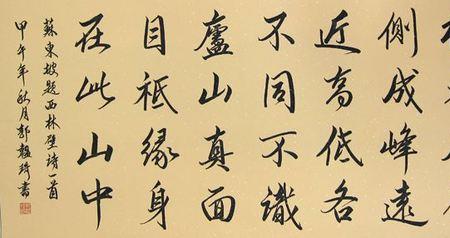 側成峰遠
近高低各
不同不識
廬山真面
目祇緣身
在此山中
蘇東坡題西林壁詩一首
甲午年秋月郭琦書